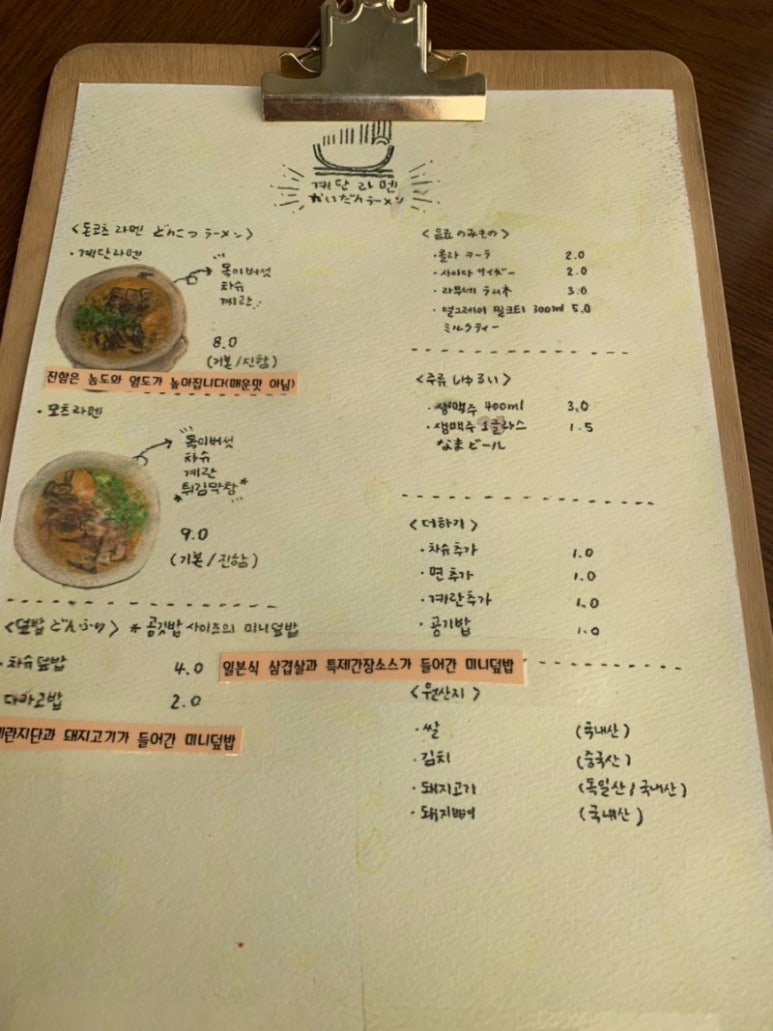 계단라멘
かいだんラーメン
<돈코츠 라멘 とんこつ ラーメン>
· 계단라멘
목이버섯
차슈
계란
8.0
(기본/진함)
진함은 농도와 염도가 높아집니다(매운맛 아님)
· 모츠라멘
목이버섯
차슈
계란
*튀김막창*
9.0
(기본/진함)
<덮밥 どんぶり> *공깃밥 사이즈의 미니덮밥
· 차슈덮밥 4.0
일본식 삼겹살과 특제간장소스가 들어간 미니덮밥
다마고밥 2.0
계란지단과 돼지고기가 들어간 미니덮밥
<음료 のみもの>
· 콜라 コーラ 2.0
· 사이다 サイダー 2.0
· 라무네 ラムネ 3.0
· 얼그레이 밀크티 300ml 5.0
ミルクティー
<주류 しゅるい>
· 생맥주 400ml 3.0
· 생맥주 1글라스 1.5
なまビール
<더하기>
· 차슈추가 1.0
· 면추가 1.0
· 계란추가 1.0
· 공기밥 1.0
<원산지>
· 쌀 (국내산)
· 김치 (중국산)
· 돼지고기 (독일산/국내산)
· 돼지뼈 (국내산)